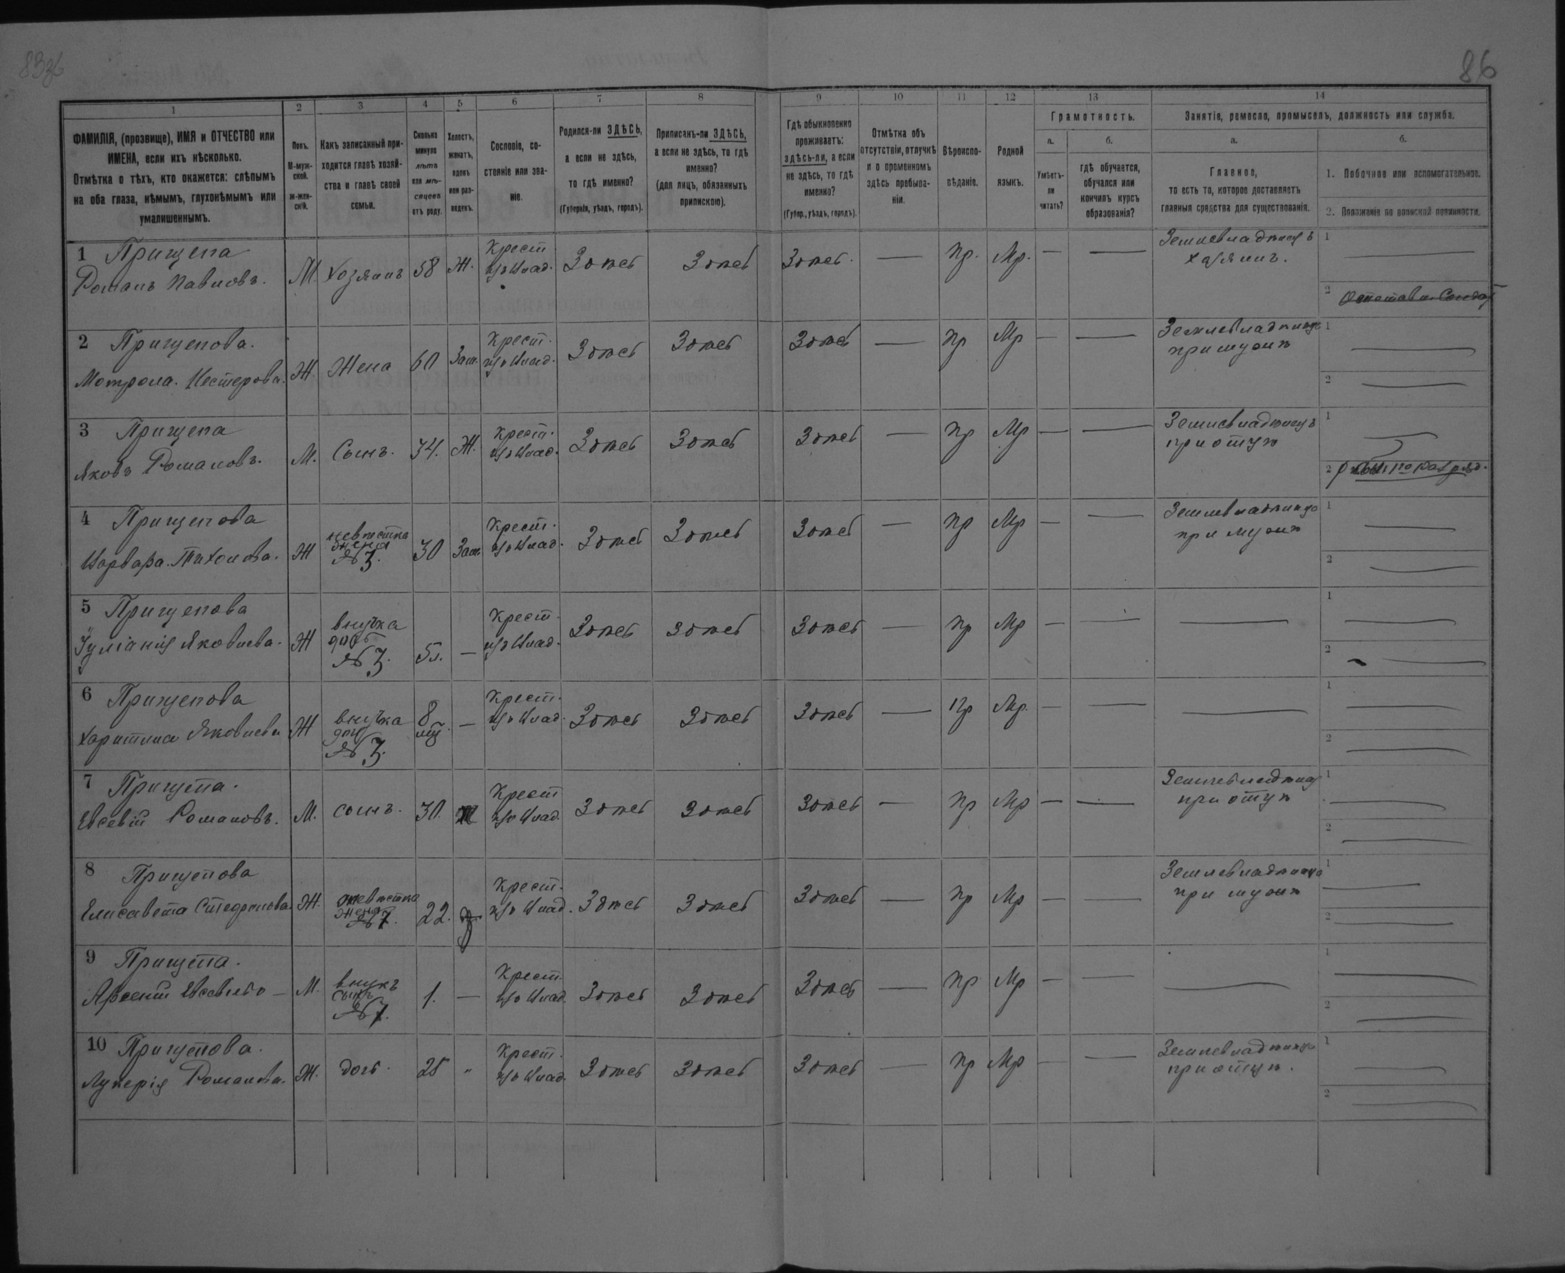 86
1 2 3 4 5 6 7 8 9 10 11 12 13 14
ФАМИЛІЯ, (прозвище), ИМЯ и ОТЧЕСТВО или
ИМЕНА, если ихъ нѣсколько.
Отмѣтка о тѣхъ, кто окажется: слѣпымъ
на оба глаза, нѣмымъ, глухонѣмымъ или
умалишеннымъ.
Полъ.
М-муж-
ской.
ж-жен-
скій.
Какъ записанный при-
ходится главѣ хозяй-
ства и главѣ своей
семьи.
Сколько
минуло
лѣтъ
или мѣ-
сяцевъ
отъ роду.
Холостъ,
женатъ,
вдовъ
или раз-
веденъ.
Сословіе, со-
стояніе или зва-
ніе.
Родился-ли ЗДѢСЬ,
а если не здѣсь,
то гдѣ именно?
(Губернія, уѣздъ, городъ).
Приписанъ-ли ЗДѢСЬ,
а если не здѣсь, то гдѣ
именно?
(для лицъ, обязанныхъ
припискою).
Гдѣ обыкновенно
проживаетъ:
здѣсь-ли, а если
не здѣсь, то гдѣ
именно?
(Губер., уѣздъ, городъ).
Отмѣтка объ
отсутствіи, отлучкѣ
и о временномъ
здѣсь пребыва-
ніи.
Вѣроиспо-
вѣданіе.
Родной
языкъ.
Грамотность.
а.
Умѣетъ-
ли
читать?
б.
гдѣ обучается,
обучался или
кончилъ курсъ
образованія?
Занятіе, ремесло, промыселъ, должность или служба.
а.
Главное,
то есть то, которое доставляетъ
главныя средства для существованія.
б.
1. Побочное или вспомогательное.
2. Положеніе по воинской повинности.
1 Прищепа
Романъ Павловъ. М. Хозяинъ 58 Ж. Крест. Здѣсь Здѣсь Здѣсь — Пр. Мр. — — Землевладѣлецъ
хозяинъ.
1 —
2
2 Прищепова.
Мотрона Нестерова. Ж. Жена 60 Зам. Крест. Здѣсь Здѣсь Здѣсь — Пр Мр — — Землевладѣлица
при мужѣ
1 —
2 —
3 Прищепа
Яковъ Романовъ. М. Сынъ. 34. Ж. Крест. Здѣсь Здѣсь Здѣсь — Пр Мр — — Землевладѣлецъ
при отцѣ
1 —
2
4 Прищепова
Варвара Тихонова. Ж невѣстка
жена
№ 3. 30 Зам Крест. Здѣсь Здѣсь Здѣсь — Пр Мр — — Землевладѣлица
при мужѣ
1 —
2 —
5 Прищепова
Іуліанія Яковлева. Ж внучка
дочь
№ 3. 5 л. — Крест. Здѣсь Здѣсь Здѣсь — Пр Мр — — —
1 —
2 —
6 Прищепова
Харитина Яковлева Ж внучка
доч
№ 3. 8
мѣ — Крест. Здѣсь Здѣсь Здѣсь — Пр Мр — — —
1 —
2 —
7 Прищепа.
Евсевій Романовъ. М. сынъ. 30. Ж Крест Здѣсь Здѣсь Здѣсь — Пр Мр — — Землевладѣлецъ
при отцѣ
1 —
2 —
8 Прищепова
Елисавета Стефанова. Ж. невѣстка
жена
№ 7. 22. Крест. Здѣсь Здѣсь Здѣсь — Пр Мр — — Землевладѣлица
при мужѣ
1 —
2 —
9 Прищепа.
Арсеній М. внукъ
сынъ
№ 7. 1. — Крест. Здѣсь Здѣсь Здѣсь — Пр Мр — — —
1 —
2 —
10 Прищепова.
Лукерія Романова. Ж. дочь. 25 - Крест. Здѣсь Здѣсь Здѣсь — Пр Мр — — Землевладѣлица
при отцѣ.
1 —
2 —